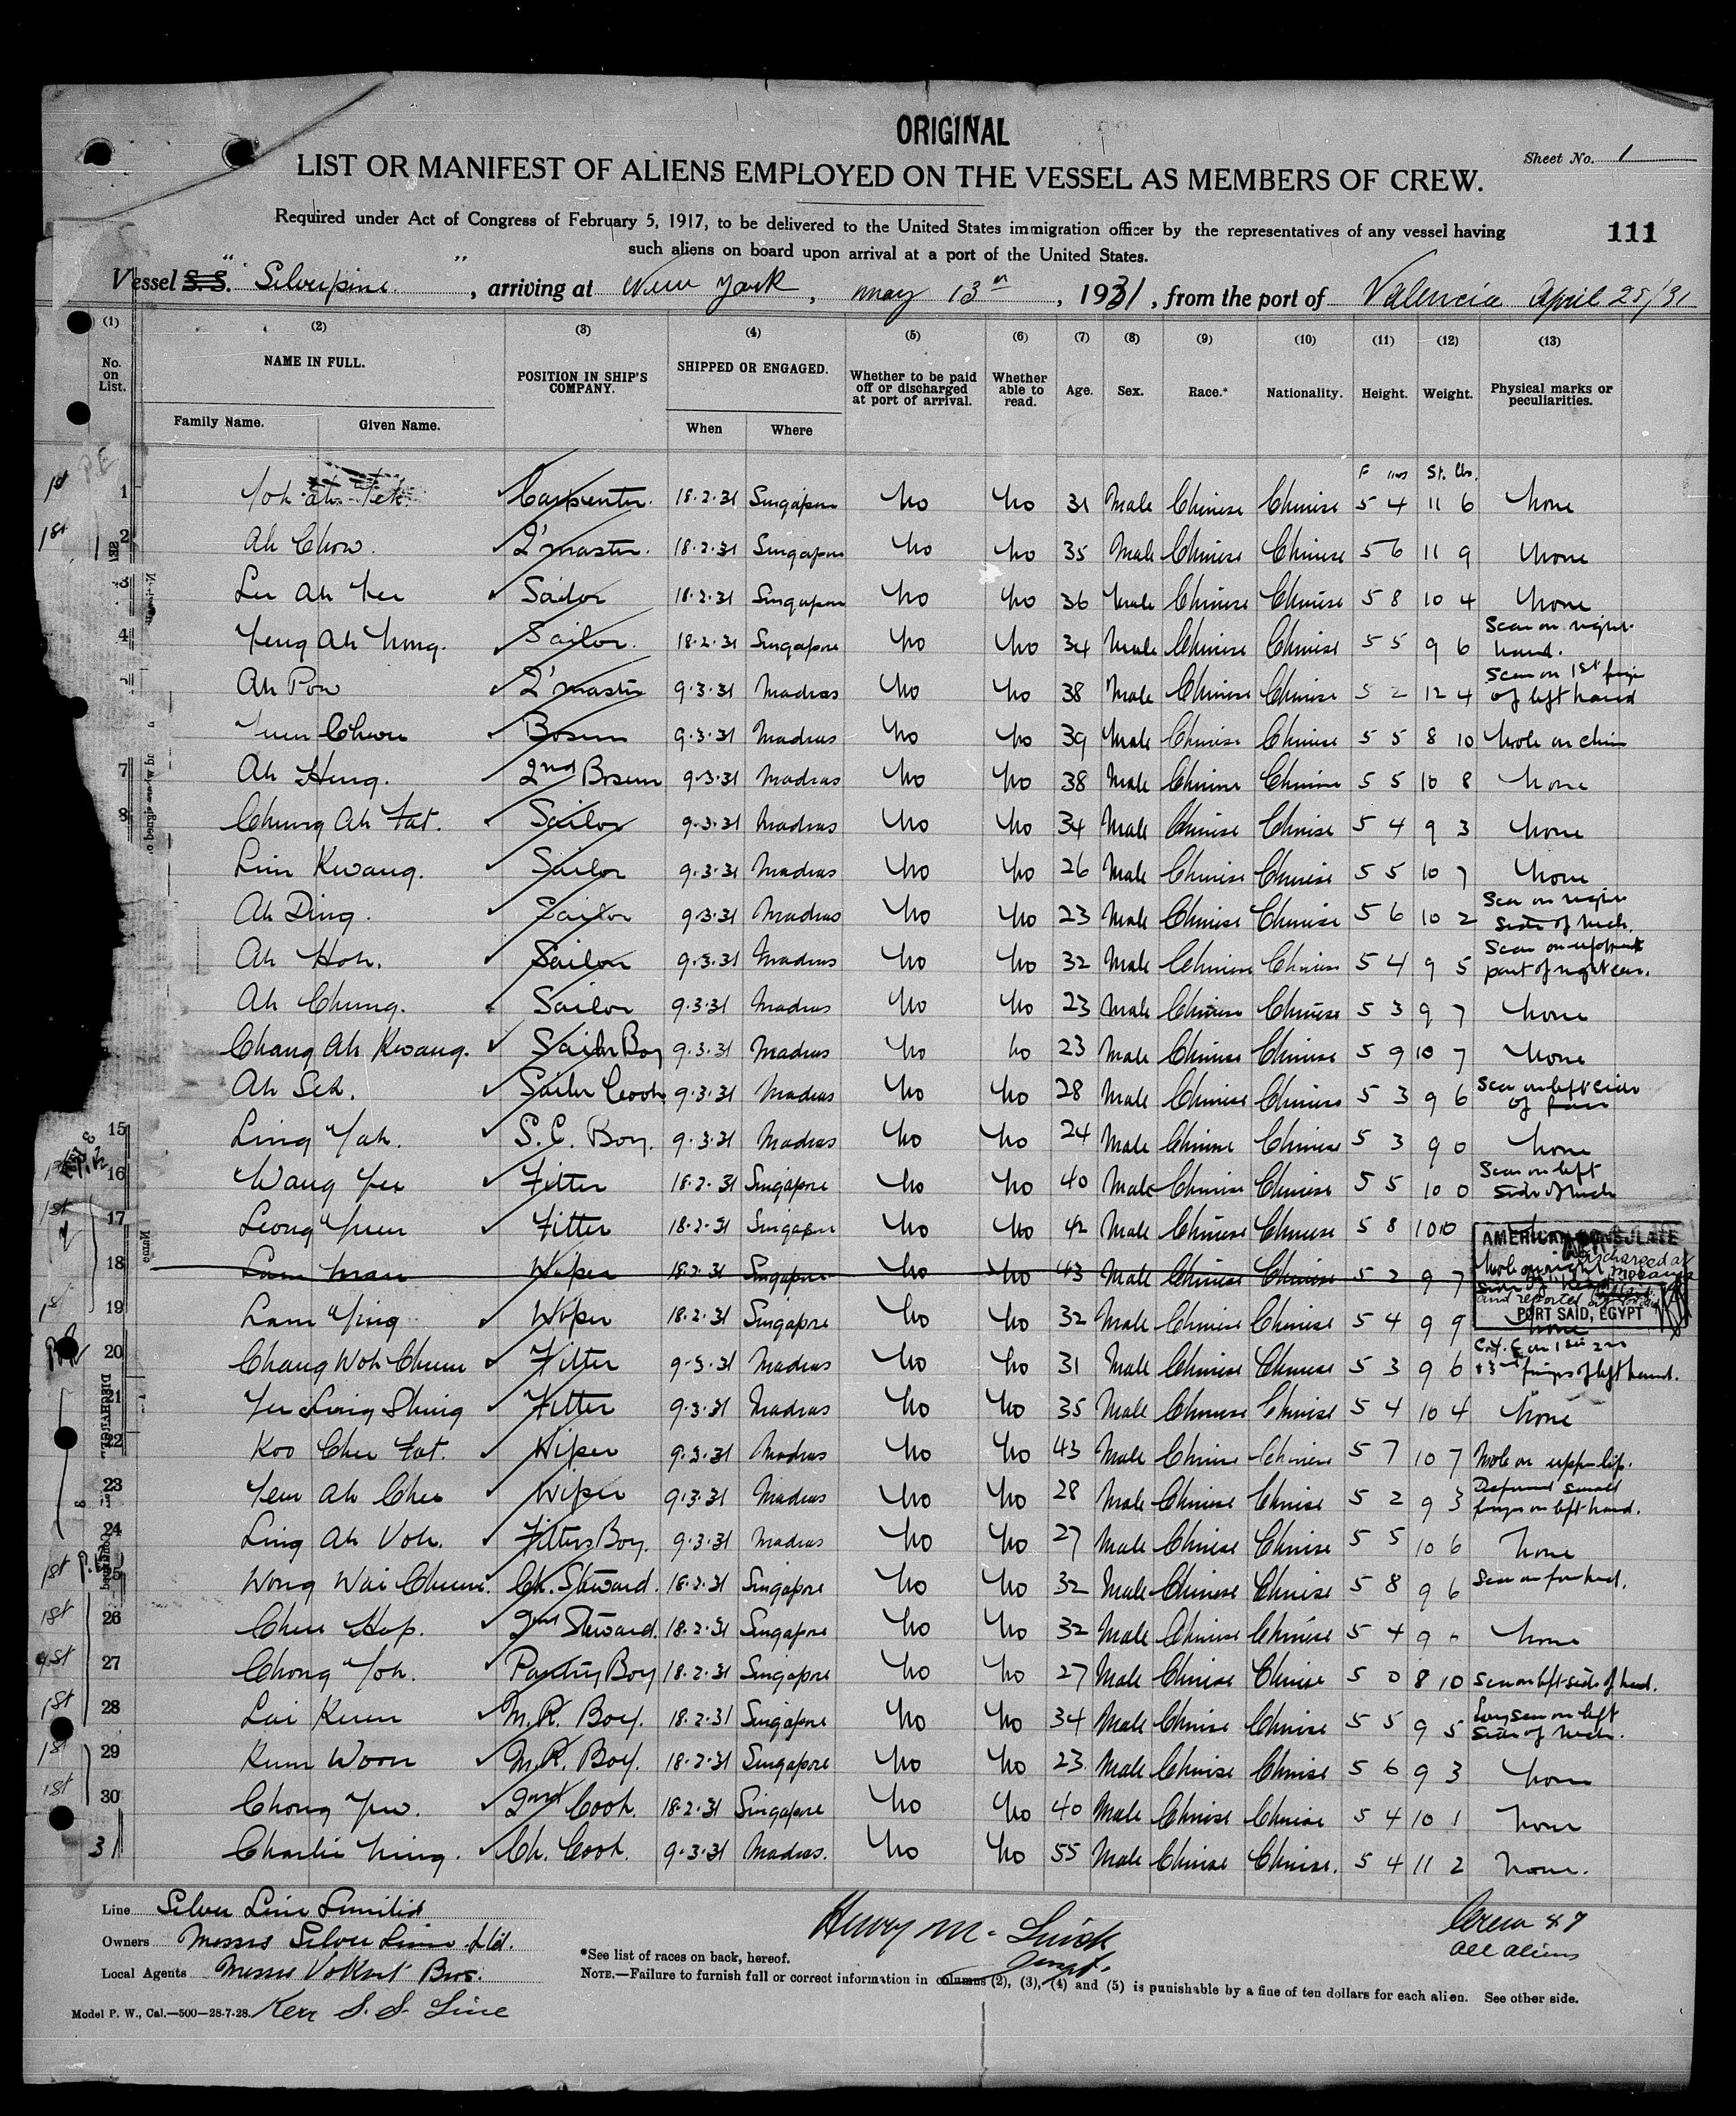 ORIGINAL
Sheet No. 1
LIST OR MANIFEST OF ALIENS EMPLOYED ON THE VESSEL AS MEMBERS OF CREW.
Required under Act of Congress of February 5, 1917, to be delivered to the United States immigration officer by the representatives of any vessel having
such aliens on board upon arrival at a port of the United States.
111
Vessel S.S. "Silverpine", arriving at New York, May 13th, 1931, from the port of Valencia April 25/31
(1) (2) (3) (4) (5) (6) (7) (8) (9) (10) (11) (12) (13)
No. on List. NAME IN FULL. POSITION IN SHIP'S COMPANY. SHIPPED OR ENGAGED. Whether to be paid off or discharged at port of arrival. Whether able to read. Age. Sex. Race.* Nationality. Height. Weight. Physical marks or peculiarities.
Family Name. Given Name. When Where
F ins St. lbs.
1st 1 Yoh Ah Tek. Carpenter. 18.2.31 Singapore No No 31 Male Chinese Chinese 5 4 11 6 None
1st 2 Ah Chow. Q'master. 18.2.31 Singapore No No 35 Male Chinese Chinese 5 6 11 9 None
3 Lee Ah Kee Sailor 18.2.31 Singapore No No 36 Male Chinese Chinese 5 8 10 4 None
4 Yeng Ah Nong. Sailor. 18.2.31 Singapore No No 34 Male Chinese Chinese 5 5 9 6 Scar on right hand.
Ah Pow Q'master 9.3.31 Madras No No 38 Male Chinese Chinese 5 2 12 4 Scar on 1st finger of left hand
Yuen Chwee Bosun 9.3.31 Madras No No 39 Male Chinese Chinese 5 5 8 10 Mole on chin
7 Ah Heng. 2nd Bosun 9.3.31 Madras No No 38 Male Chinese Chinese 5 5 10 8 None
8 Chung Ah Fat. Sailor 9.3.31 Madras No No 34 Male Chinese Chinese 5 4 9 3 None
Lim Kwang. Sailor 9.3.31 Madras No No 26 Male Chinese Chinese 5 5 10 7 None
Ah Ding. Sailor 9.3.31 Madras No No 23 Male Chinese Chinese 5 6 10 2 Scar on right side of neck.
Ah Hoh. Sailor 9.3.31 Madras No No 32 Male Chinese Chinese 5 4 9 5 Scar on upper part of right ear.
Ah Chung. Sailor 9.3.31 Madras No No 23 Male Chinese Chinese 5 3 9 7 None
Chang Ah Kwang. Sailor Boy 9.3.31 Madras No No 23 Male Chinese Chinese 5 9 10 7 None
Ah Seh. Sailor Cook 9.3.31 Madras No No 28 Male Chinese Chinese 5 3 9 6 Scar on left side of face
15 Ling Yah. S.C. Boy. 9.3.31 Madras No No 24 Male Chinese Chinese 5 3 9 0 None
16 Wang Yee Fitter 18.2.31 Singapore No No 40 Male Chinese Chinese 5 5 10 0 Scar on left side of neck
1st 17 Leong Yuen Fitter 18.2.31 Singapore No No 42 Male Chinese Chinese 5 8 10 0
18 Lam Man Wiper 18.2.31 Singapore No No 43 Male Chinese Chinese 5 2 9 7 Mole on right side of
AMERICAN CONSULATE
discharged at
and reported
PORT SAID, EGYPT
1st 19 Lam Ying Wiper 18.2.31 Singapore No No 32 Male Chinese Chinese 5 4 9 9 None
20 Chang Woh Chuen Fitter 9.3.31 Madras No No 31 Male Chinese Chinese 5 3 9 6 on 1st 2nd & 3rd fingers of left hand.
21 Yee Ling Shing Fitter 9.3.31 Madras No No 35 Male Chinese Chinese 5 4 10 4 None
22 Koo Chee Fat. Wiper 9.3.31 Madras No No 43 Male Chinese Chinese 5 7 10 7 Mole on upper lip.
23 Yew Ah Chee Wiper 9.3.31 Madras No No 28 Male Chinese Chinese 5 2 9 3 Deformed small finger on left hand.
24 Ling Ah Voh. Fitters Boy. 9.3.31 Madras No No 27 Male Chinese Chinese 5 5 10 6 None
1st 25 Wong Wai Chuen. Ch. Steward. 18.2.31 Singapore No No 32 Male Chinese Chinese 5 8 9 6 Scar on forehead.
1st 26 Chee Hop. 2nd Steward. 18.2.31 Singapore No No 32 Male Chinese Chinese 5 4 9 0 None
1st 27 Chong Yoh. Pantry Boy 18.2.31 Singapore No No 27 Male Chinese Chinese 5 0 8 10 Scar on left side of head.
1st 28 Lai Kuen M.R. Boy. 18.2.31 Singapore No No 34 Male Chinese Chinese 5 5 9 5 Long scar on left side of neck.
1st 29 Kum Woon M.R. Boy. 18.2.31 Singapore No No 23 Male Chinese Chinese 5 6 9 3 None
1st 30 Chong Yew. 2nd Cook. 18.2.31 Singapore No No 40 Male Chinese Chinese 5 4 10 1 None
31 Charlie Ning. Ch. Cook. 9.3.31 Madras. No No 55 Male Chinese Chinese. 5 4 11 2 None.
Line Silver Line Limited
Owners Messrs Silver Line Ltd.
Local Agents Messrs Volkart Bros.
Kerr S.S. Line
Henry M.
Crew 47
all aliens
*See list of races on back, hereof.
NOTE.—Failure to furnish full or correct information in columns (2), (3), (4) and (5) is punishable by a fine of ten dollars for each alien. See other side.
Model P. W., Cal.—500—28-7-28.